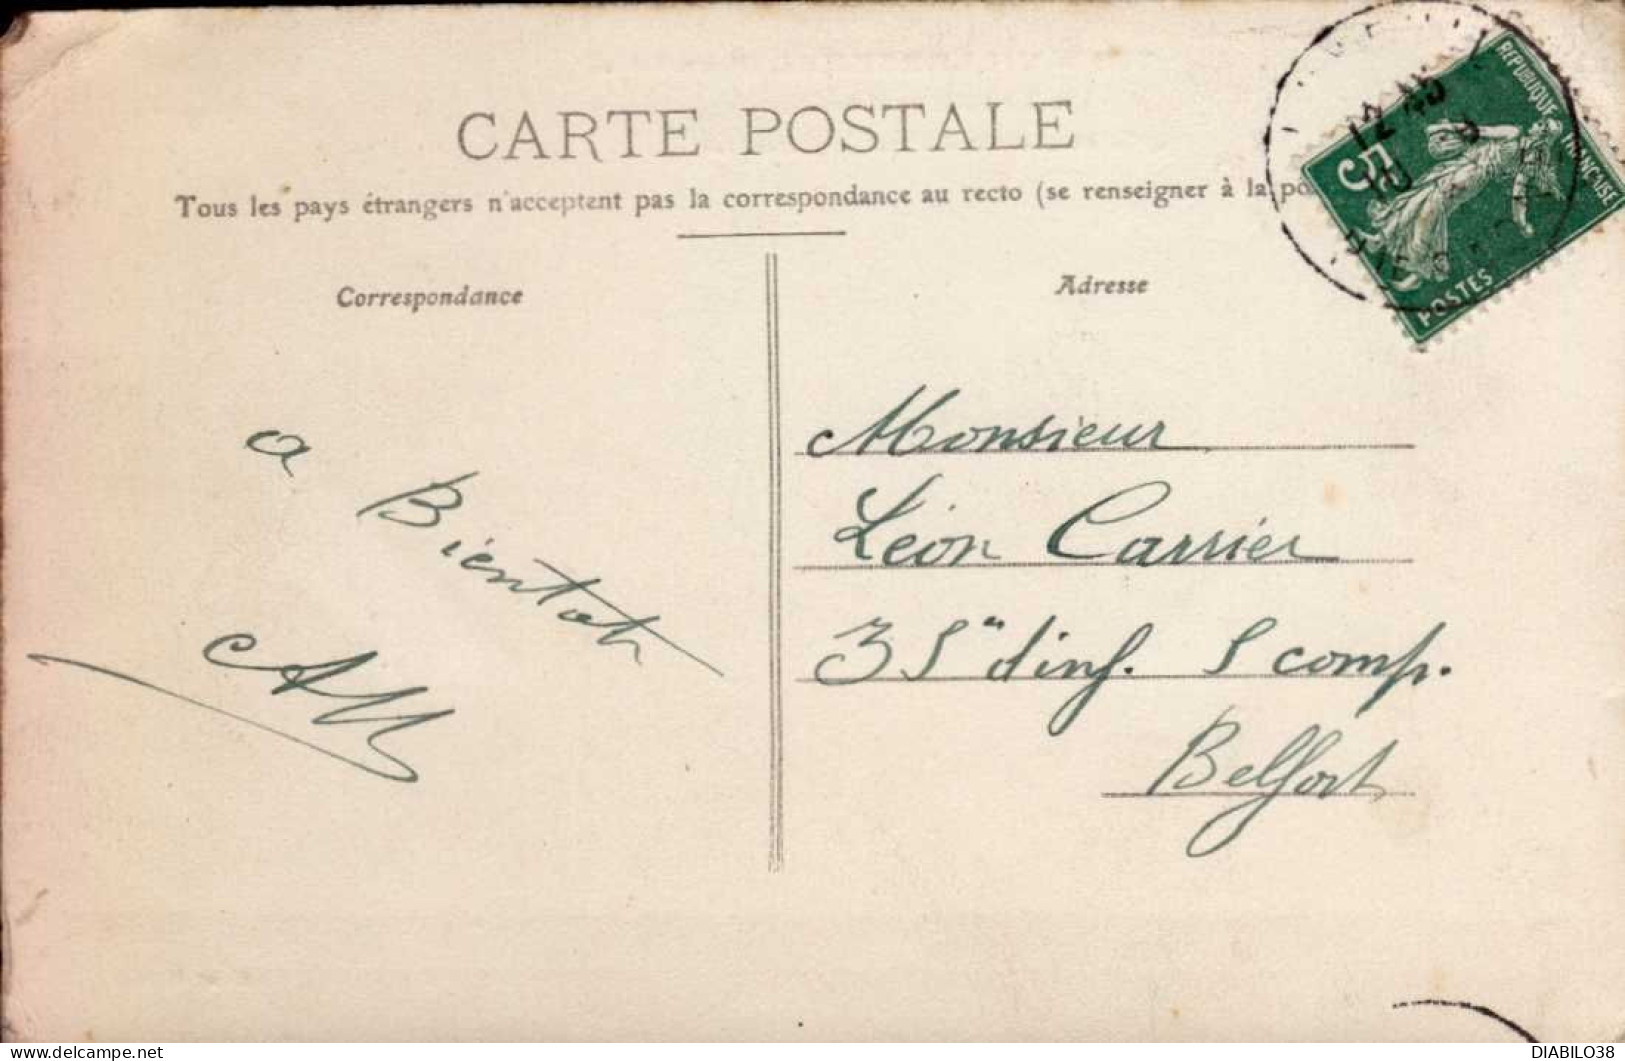 CARTE POSTALE
Tous les pays étrangers n'acceptent pas la correspondance au recto (se renseigner à la po
Correspondance
Adresse
RÉPUBLIQUE FRANÇAISE
5
POSTES
a Bientot
AM
Monsieur
Léon Carrier
35e d'inf. 5 comp.
Belfort
DIABILO38